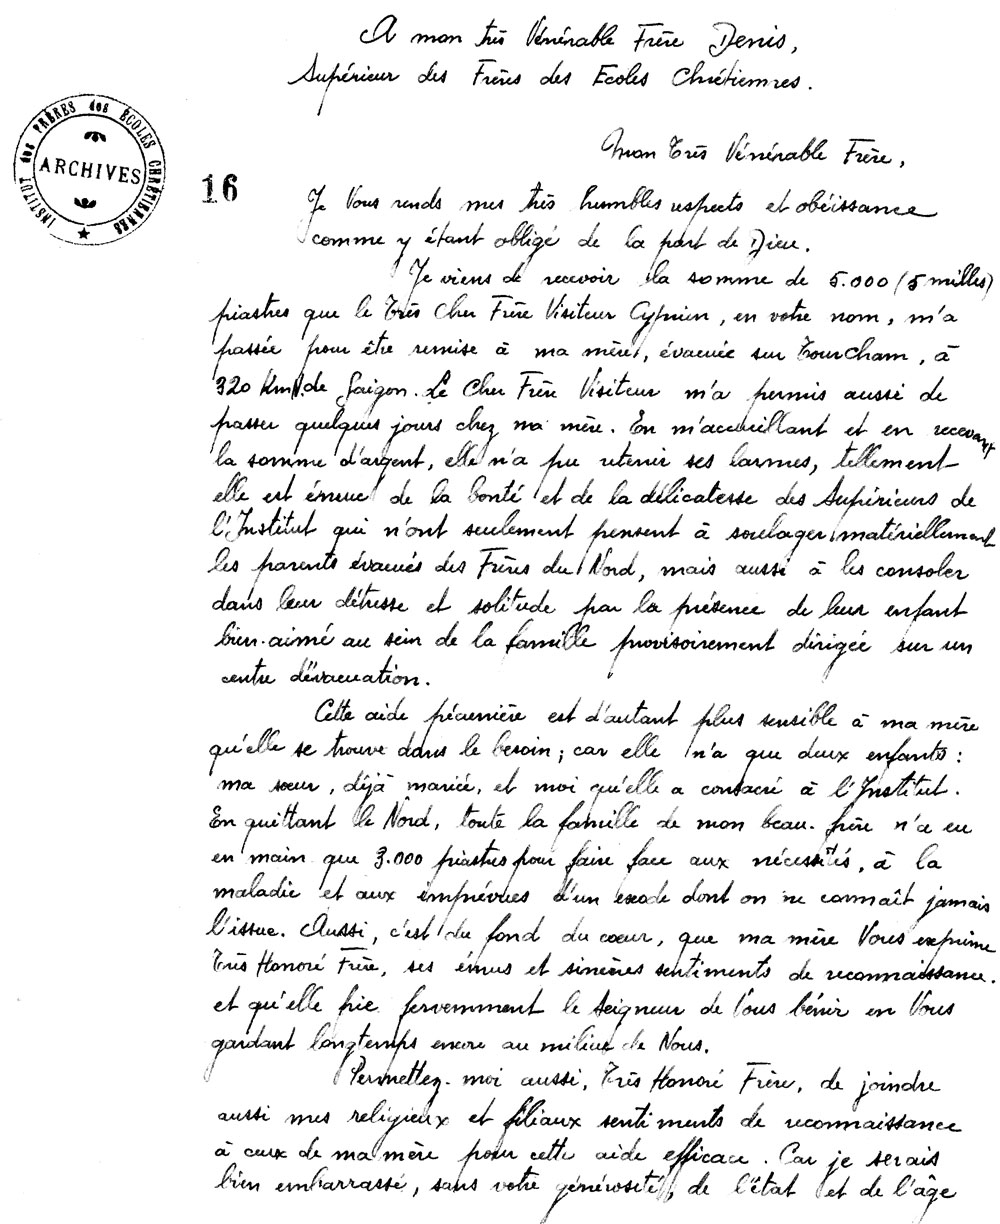 A mon très Vénérable Frère Denis,
Supérieur des Frères des Ecoles Chrétiennes.
INSTITUT des FRÈRES des ÉCOLES CHRÉTIENNES
ARCHIVES
Mon Très Vénérable Frère,
16
Je Vous rends mes très humbles respects et obéissance
comme y étant obligé de la part de Dieu.
Je viens de recevoir la somme de 5.000 (5 milles)
piastres que le Très Cher Frère Visiteur Cyprien, en votre nom, m'a
passée pour être remise à ma mère, évacuée sur Tourcham, à
320 Km. de Saigon. Le Cher Frère Visiteur m'a permis aussi de
passer quelques jours chez ma mère. En m'accueillant et en recevant
la somme d'argent, elle n'a pu retenir ses larmes, tellement
elle est émue de la bonté et de la délicatesse des Supérieurs de
l'Institut qui n'ont seulement pensent à soulager matériellement
les parents évacués des Frères du Nord, mais aussi à les consoler
dans leur détresse et solitude par la présence de leur enfant
bien-aimé au sein de la famille provisoirement dirigée sur un
centre d'évacuation.
Cette aide pécunière est d'autant plus sensible à ma mère
qu'elle se trouve dans le besoin; car elle n'a que deux enfants:
ma sœur, déjà mariée, et moi qu'elle a consacré à l'Institut.
En quittant le Nord, toute la famille de mon beau-frère n'a eu
en main que 3.000 piastres pour faire face aux nécessités, à la
maladie et aux imprévues d'un exode dont on ne connaît jamais
l'issue. Aussi, c'est du fond du cœur, que ma mère Vous exprime
Très Honoré Frère, ses émus et sincères sentiments de reconnaissance.
et qu'elle prie fervemment le Seigneur de Vous bénir en Vous
gardant longtemps encore au milieu de Nous.
Permettez-moi aussi, Très Honoré Frère, de joindre
aussi mes religieux et filiaux sentiments de reconnaissance
à ceux de ma mère pour cette aide efficace. Car je serais
bien embarrassé, sans votre générosité, de l'état et de l'âge